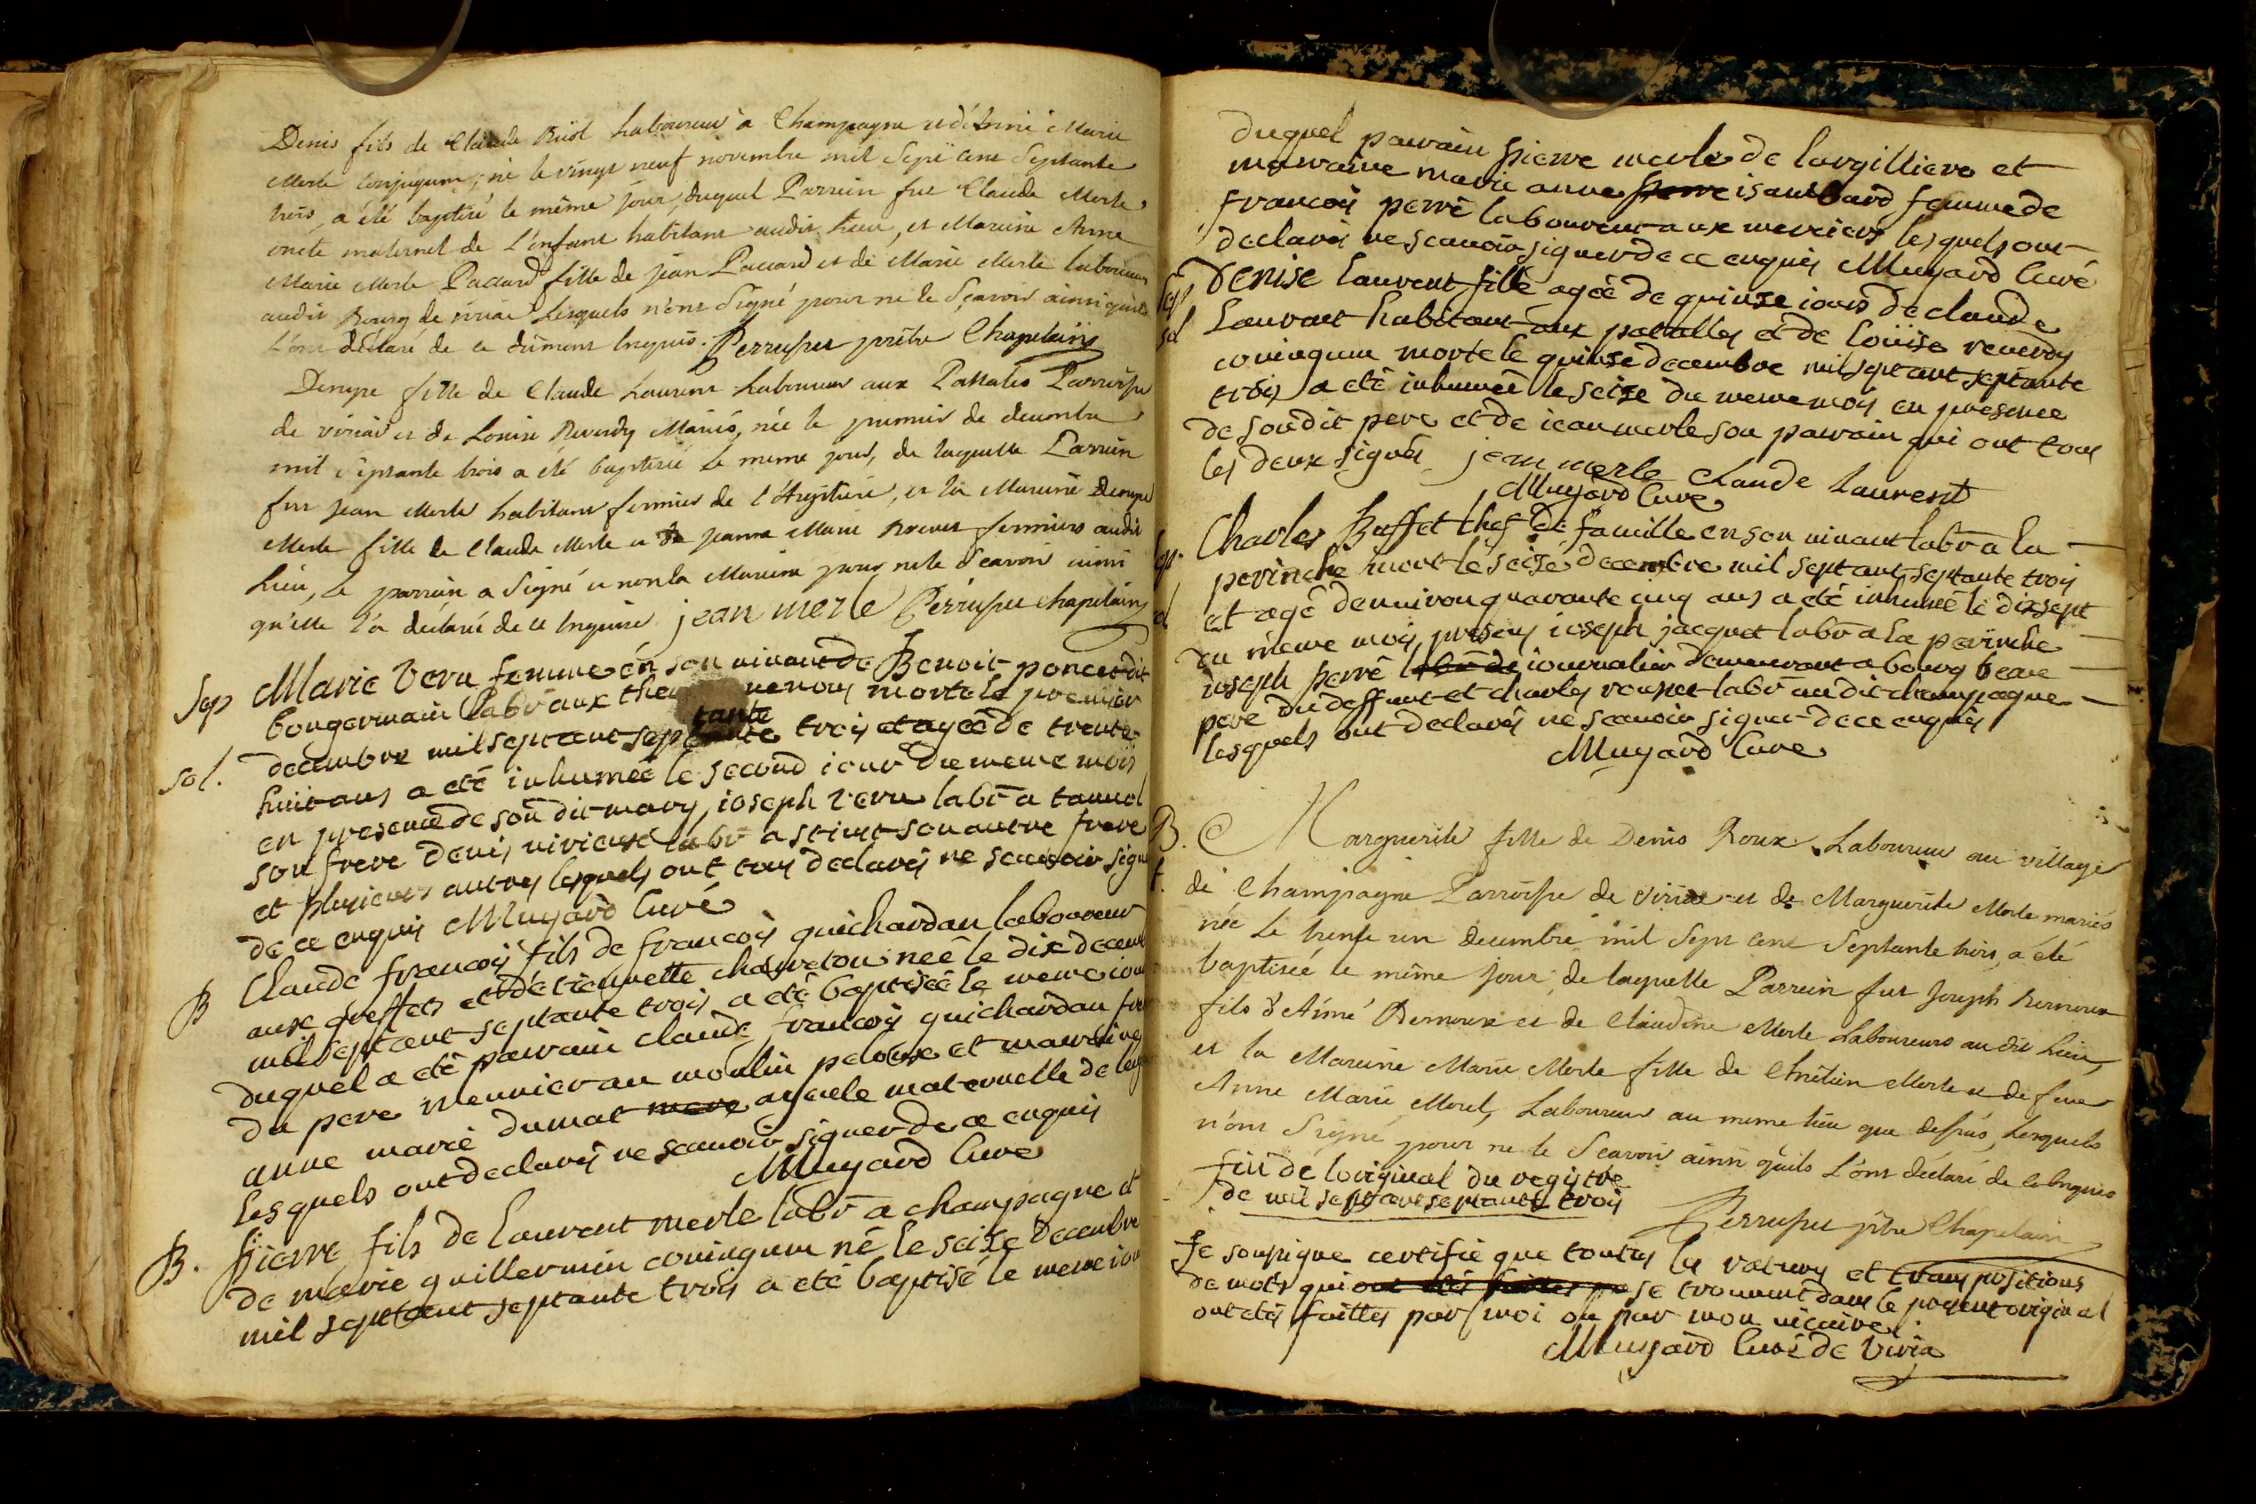 Denis fils de Claude Buist Laboureur à Champagne et d'Aimé Marie
Merle conjugum; né le vingt neuf novembre mil Sept cent Septante
trois, a été baptisé le même jour, duquel Parrein fut Claude Merle
oncle maternel de L'enfant habitant audit Lieu, et Mareine Anne
Marie Merle Paccard fille de jean Paccard et de Marie Merle laboureur
audit Bourg de viriat Lesquels n'ont Signé pour ne le Sçavoir ainsi quils
L'ont déclaré de ce düment Enquis. Perruset prêtre Chapelain
Denyse fille de Claude Laurent Laboureur aux Pattales Parroisse
de viriat et de Louise Reverdy Mariés, née le premier de decembre
mil Septante trois a été baptisée le meme jour, de laquelle Parrein
fut Jean Merle habitant fermier de l'Argilliere, et la Mareine Denyse
Merle fille de Claude Merle et de jeanne Marie fermiers audit
Lieu, Le parrein a Signé et non la Mareine pour ne le Scavoir ainsi
qu'elle l'a déclaré de ce Enquise jean merle Perruset chapelain
Sep Marie Veru femme en son vivant de Benoit poncet dit
bongermain labr aux morte le premier
sol. decembre mil sept cent septante tante trois et agée de trente
huit ans a eté inhumée le second jour du meme mois
en presence de son dit mary, ioseph veru labr a tanuol
son frere denis labr a stint son autre frere
et plusieurs autres lesquels ont tous declarés ne scavoir signer
de ce enquis Muyard Curé
B Claude françois fils de françois guichardan laboureur
aux greffets et d'etiennette chavreton née le dix decem
mil sept cent septante trois a eté baptisée le meme iour
duquel a eté parrain claude françois guichardan frere
du pere meunier au moulin pelouse et marraine
anne marie dumat mere ayeule maternelle de
lesquels ont declarés ne scavoir signer de ce enquis
Muyard Cure
B. pierre fils de laurent merle labr a champagne et
de marie guillermin coniugum né le seize decembre
mil sept cent septante trois a eté baptisé le meme iour
duquel parrain pierre merle de largilliere et
marraine marie anne perre isambard femme de
françois perré laboureur aux merciers lesquels ont
declarés ne scauoir signer de ce enquis Muyard Curé
Sep Denise laurent fille agée de quinze iours de claude
sol Laurent habitant aux patalles et de loüise reverdy
coniugum morte le quinse decembre mil sept cent septante
trois a eté inhumée le seize du meme mois en presence
de son dit pere et de iean merle son parrain qui ont tous
les deux signés jean merle Claude Laurent
Muyard Cure
Sep. Charles Buffet chef de famille en son vivant labr a la
perinche mort le seise decembre mil sept cent septante trois
sol et agé denviron quarante cinq ans a eté inhumé le dixsept
du meme mois presens ioseph jacquet labr a la perinche
ioseph perré labr de iournalier demeurant a bourg beau
pere du deffunt et charles rousset labr au dit champagne
lesquels ont declarés ne scavoir signer de ce enquis
Muyard Cure
B. Marguerite fille de Denis Roux Laboureur au village
f. de Champagne Parroisse de Viriat et de Marguerite Merle mariés
née Le trente un decembre mil Sept cent Septante trois, a été
baptisée le même jour, de laquelle Parrein fut Joseph Bernoux
fils d'Aimé Bernoux et de Claudine Merle Laboureurs au dit Lieu,
et la Mareine Marie Merle fille de Etretien Merle et de feue
Anne Marie Morel, Laboureur au meme lieu que dessus, Lesquels
n'ont Signé pour ne le Scavoir ainsi quils L'ont déclaré de ce Enquis
fin de loriginal du registre
de mil sept cent septante trois
Perruset ptre Chapelain
Je soussigne certifie que toutes les ratures et transpositions
de mots qui ont etés faites pa se trouvent dans le present original
ont etés faittes par moi ou par mon vicaire.
Muyard Curé de Viria